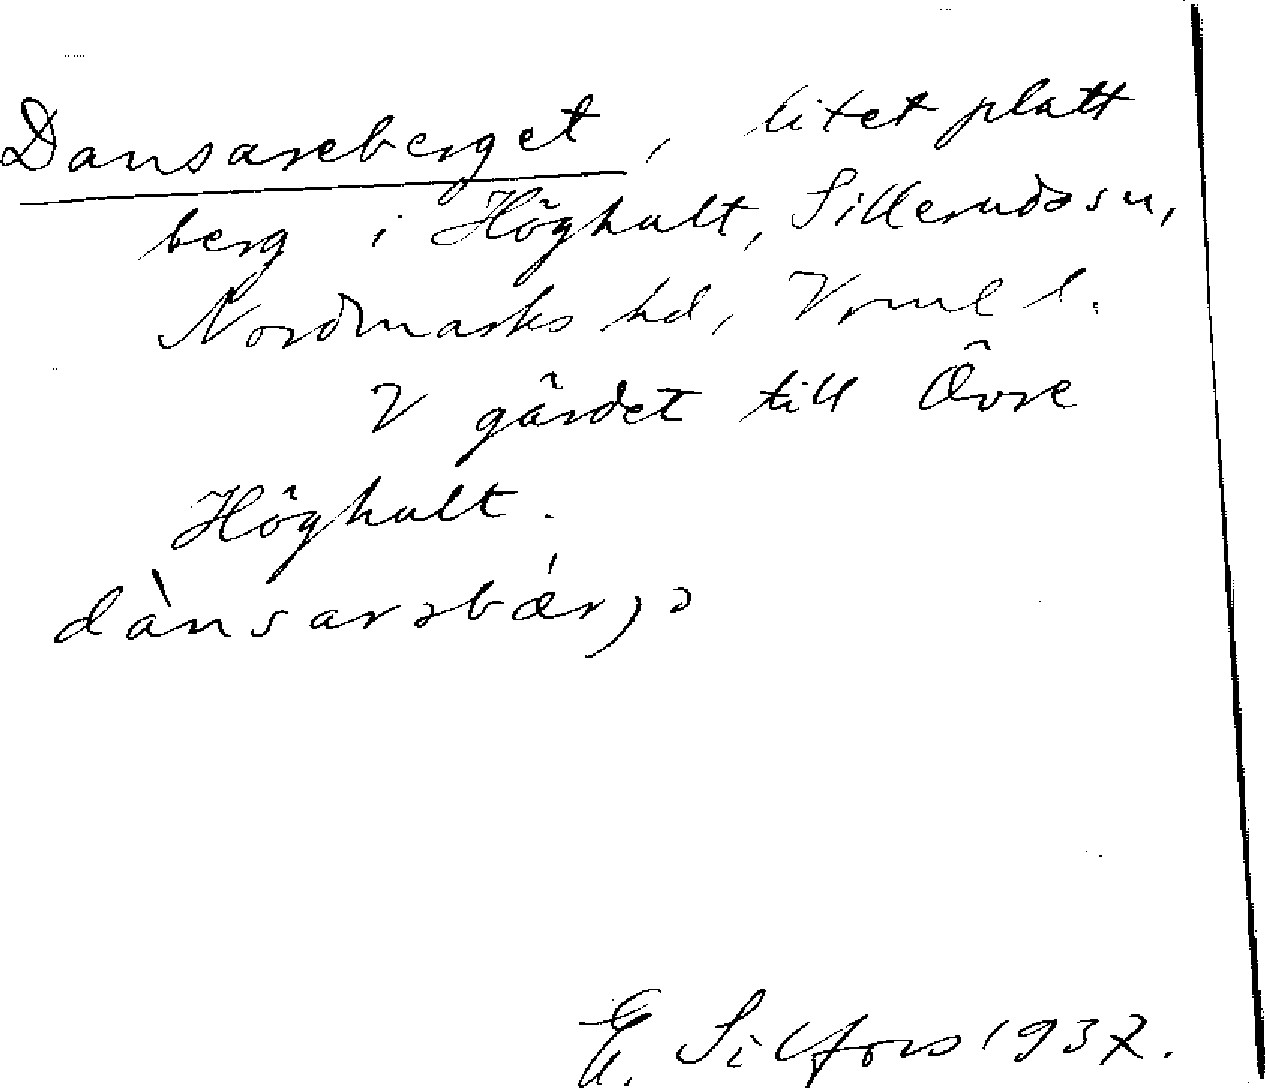 Dansareberget, litet platt
berg i Höghult, Silleruds sn,
Nordmarks hd, Vrml l.
V gärdet till Övre
Höghult.
dànsarəbǽrjə
E. Silfors 1937.